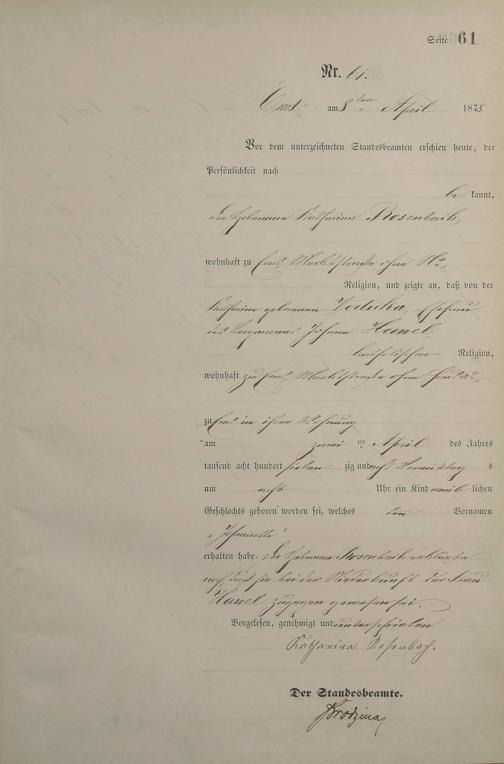 Seite 61
Nr. 61.
Ems am 8ten April 1878
Vor dem unterzeichneten Standesbeamten erschien heute, der
Persönlichkeit nach
be kannt,
die Hebamme Katharina Rosenbach,
wohnhaft zu Ems, Marktstraße ohne No,
Religion, und zeigte an, daß von der
Katharina geborenen Ehefrau
des Johann Hawel,
katholischer Religion,
wohnhaft zu Ems, Marktstraße ohne
zu Ems in ihrer Wohnung
am zwei ten April des Jahres
tausend acht hundert sieben zig und acht Vormittags
um acht Uhr ein Kind weib lichen
Geschlechts geboren worden sei, welches den Vornamen
erhalten habe. Die Hebamme Rosenbach erklärte
noch daß sie bei der Niederkunft der Frau
Hawel zugegen gewesen sei.
Vorgelesen, genehmigt und unterschrieben
Katharina Rosenbach.
Der Standesbeamte.